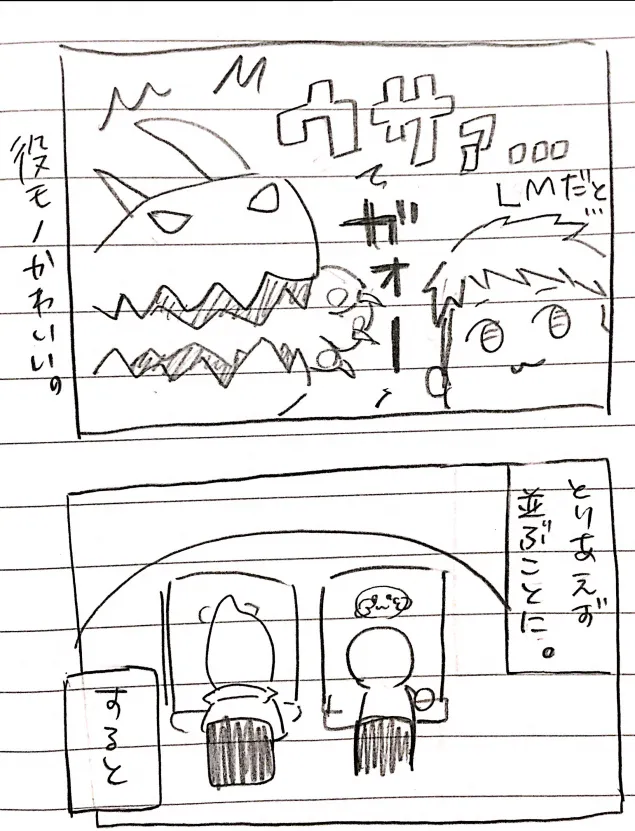 ウサァ…
LMだと…
ガオー
役モノかわいい。
とりあえず
並ぶことに。
すると